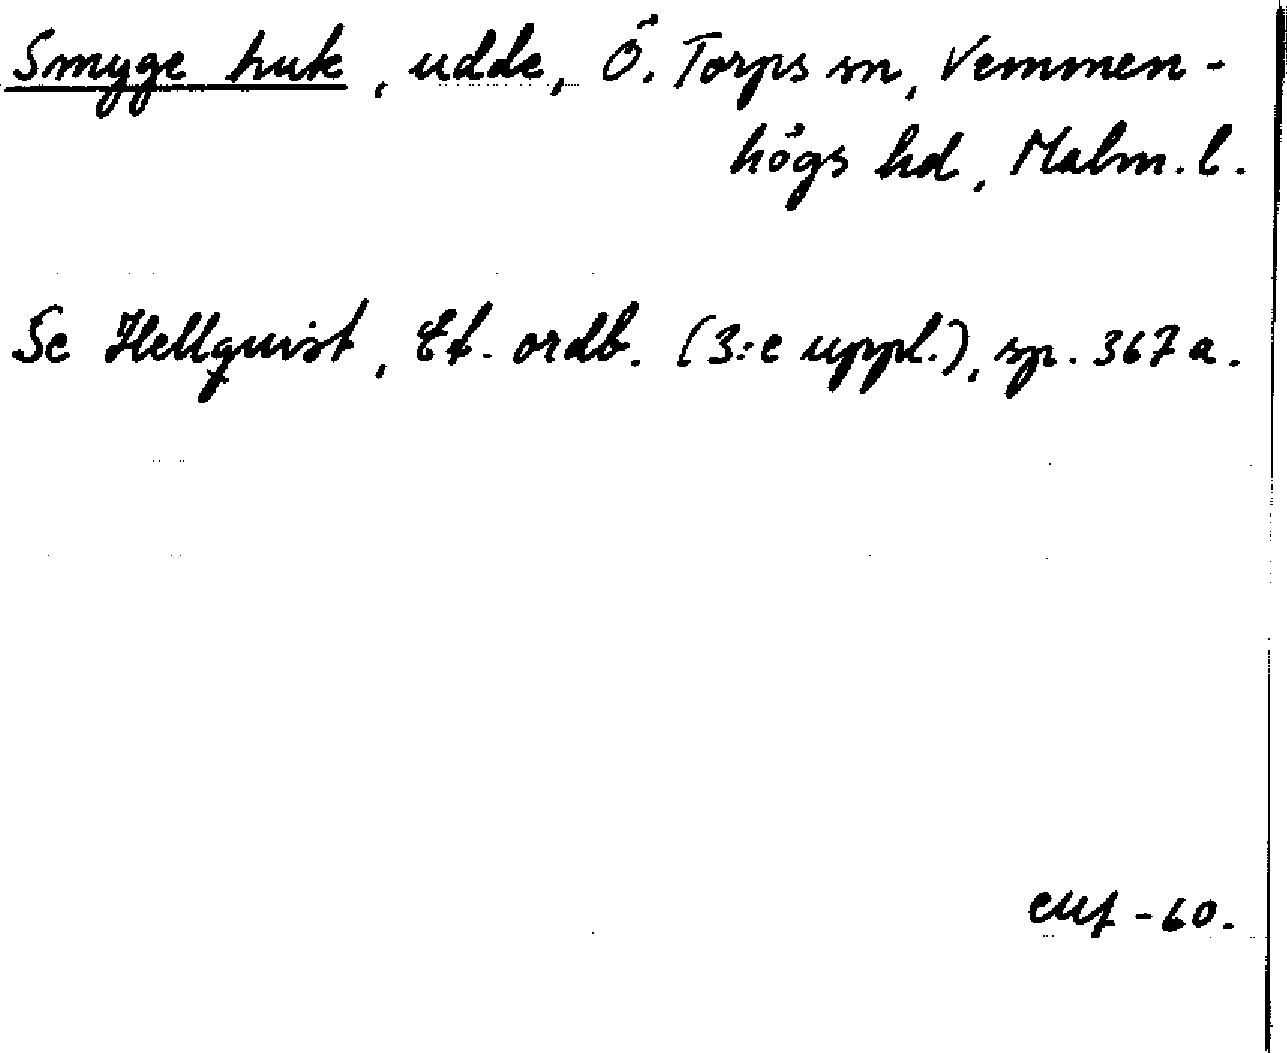 Smyge huk, udde, Ö. Torps sn, Vemmen-
högs hd, Malm. l.
Se Hellquist, Et. ordb. (3:e uppl.), sp. 367 a.
-60.